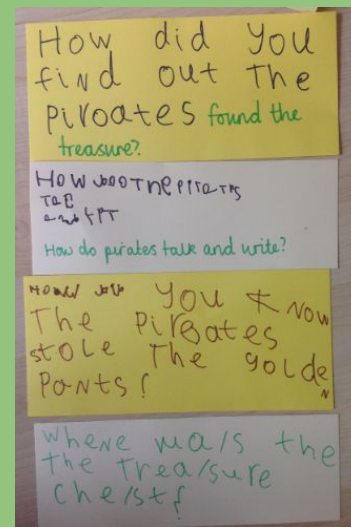 How did you
find out The
piroates found the
treasure?
How do The
How do pirates talk and write?
you know
The Pirgates
stole The golde
n
Pants!
where was the
the treasure
chest?